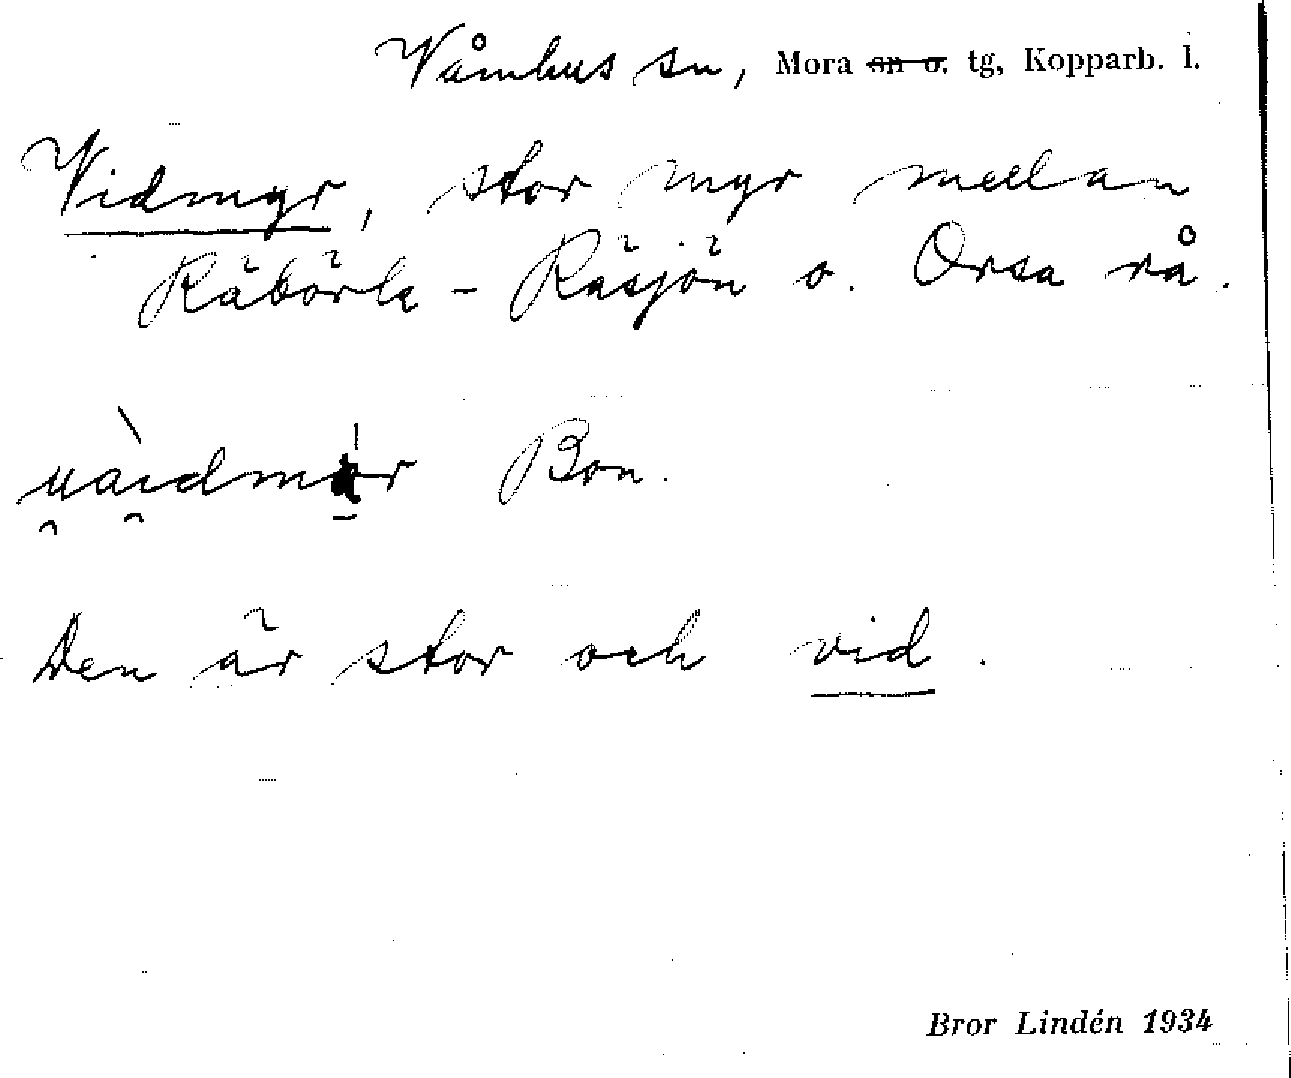 Våmhus sn, Mora sn o. tg, Kopparb. l.
Vidmyr, stor myr mellan
Räbärle - Räsjön o. Orsa rå.
Bon.
Den är stor och vid.
Bror Lindén 1934